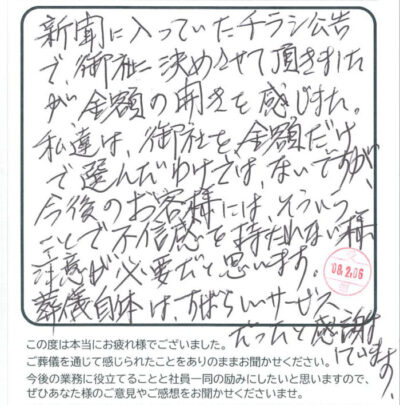 新聞に入っていたチラシ公告
で、御社に決めさせて頂きました
が金額の開きを感じました。
私達は、御社を金額だけ
で選んだわけでは、ないですが、
今後のお客様には、そういった
ことで不信感を持たれない様
注意が必要だと思います。
08.2.06
葬儀自体は、すばらしいサービス
だったと感謝
しています。
この度は本当にお疲れ様でございました。
ご葬儀を通じて感じられたことをありのままお聞かせください。
今後の業務に役立てることと社員一同の励みにしたいと思いますので、
ぜひあなた様のご意見やご感想をお聞かせくださいませ。